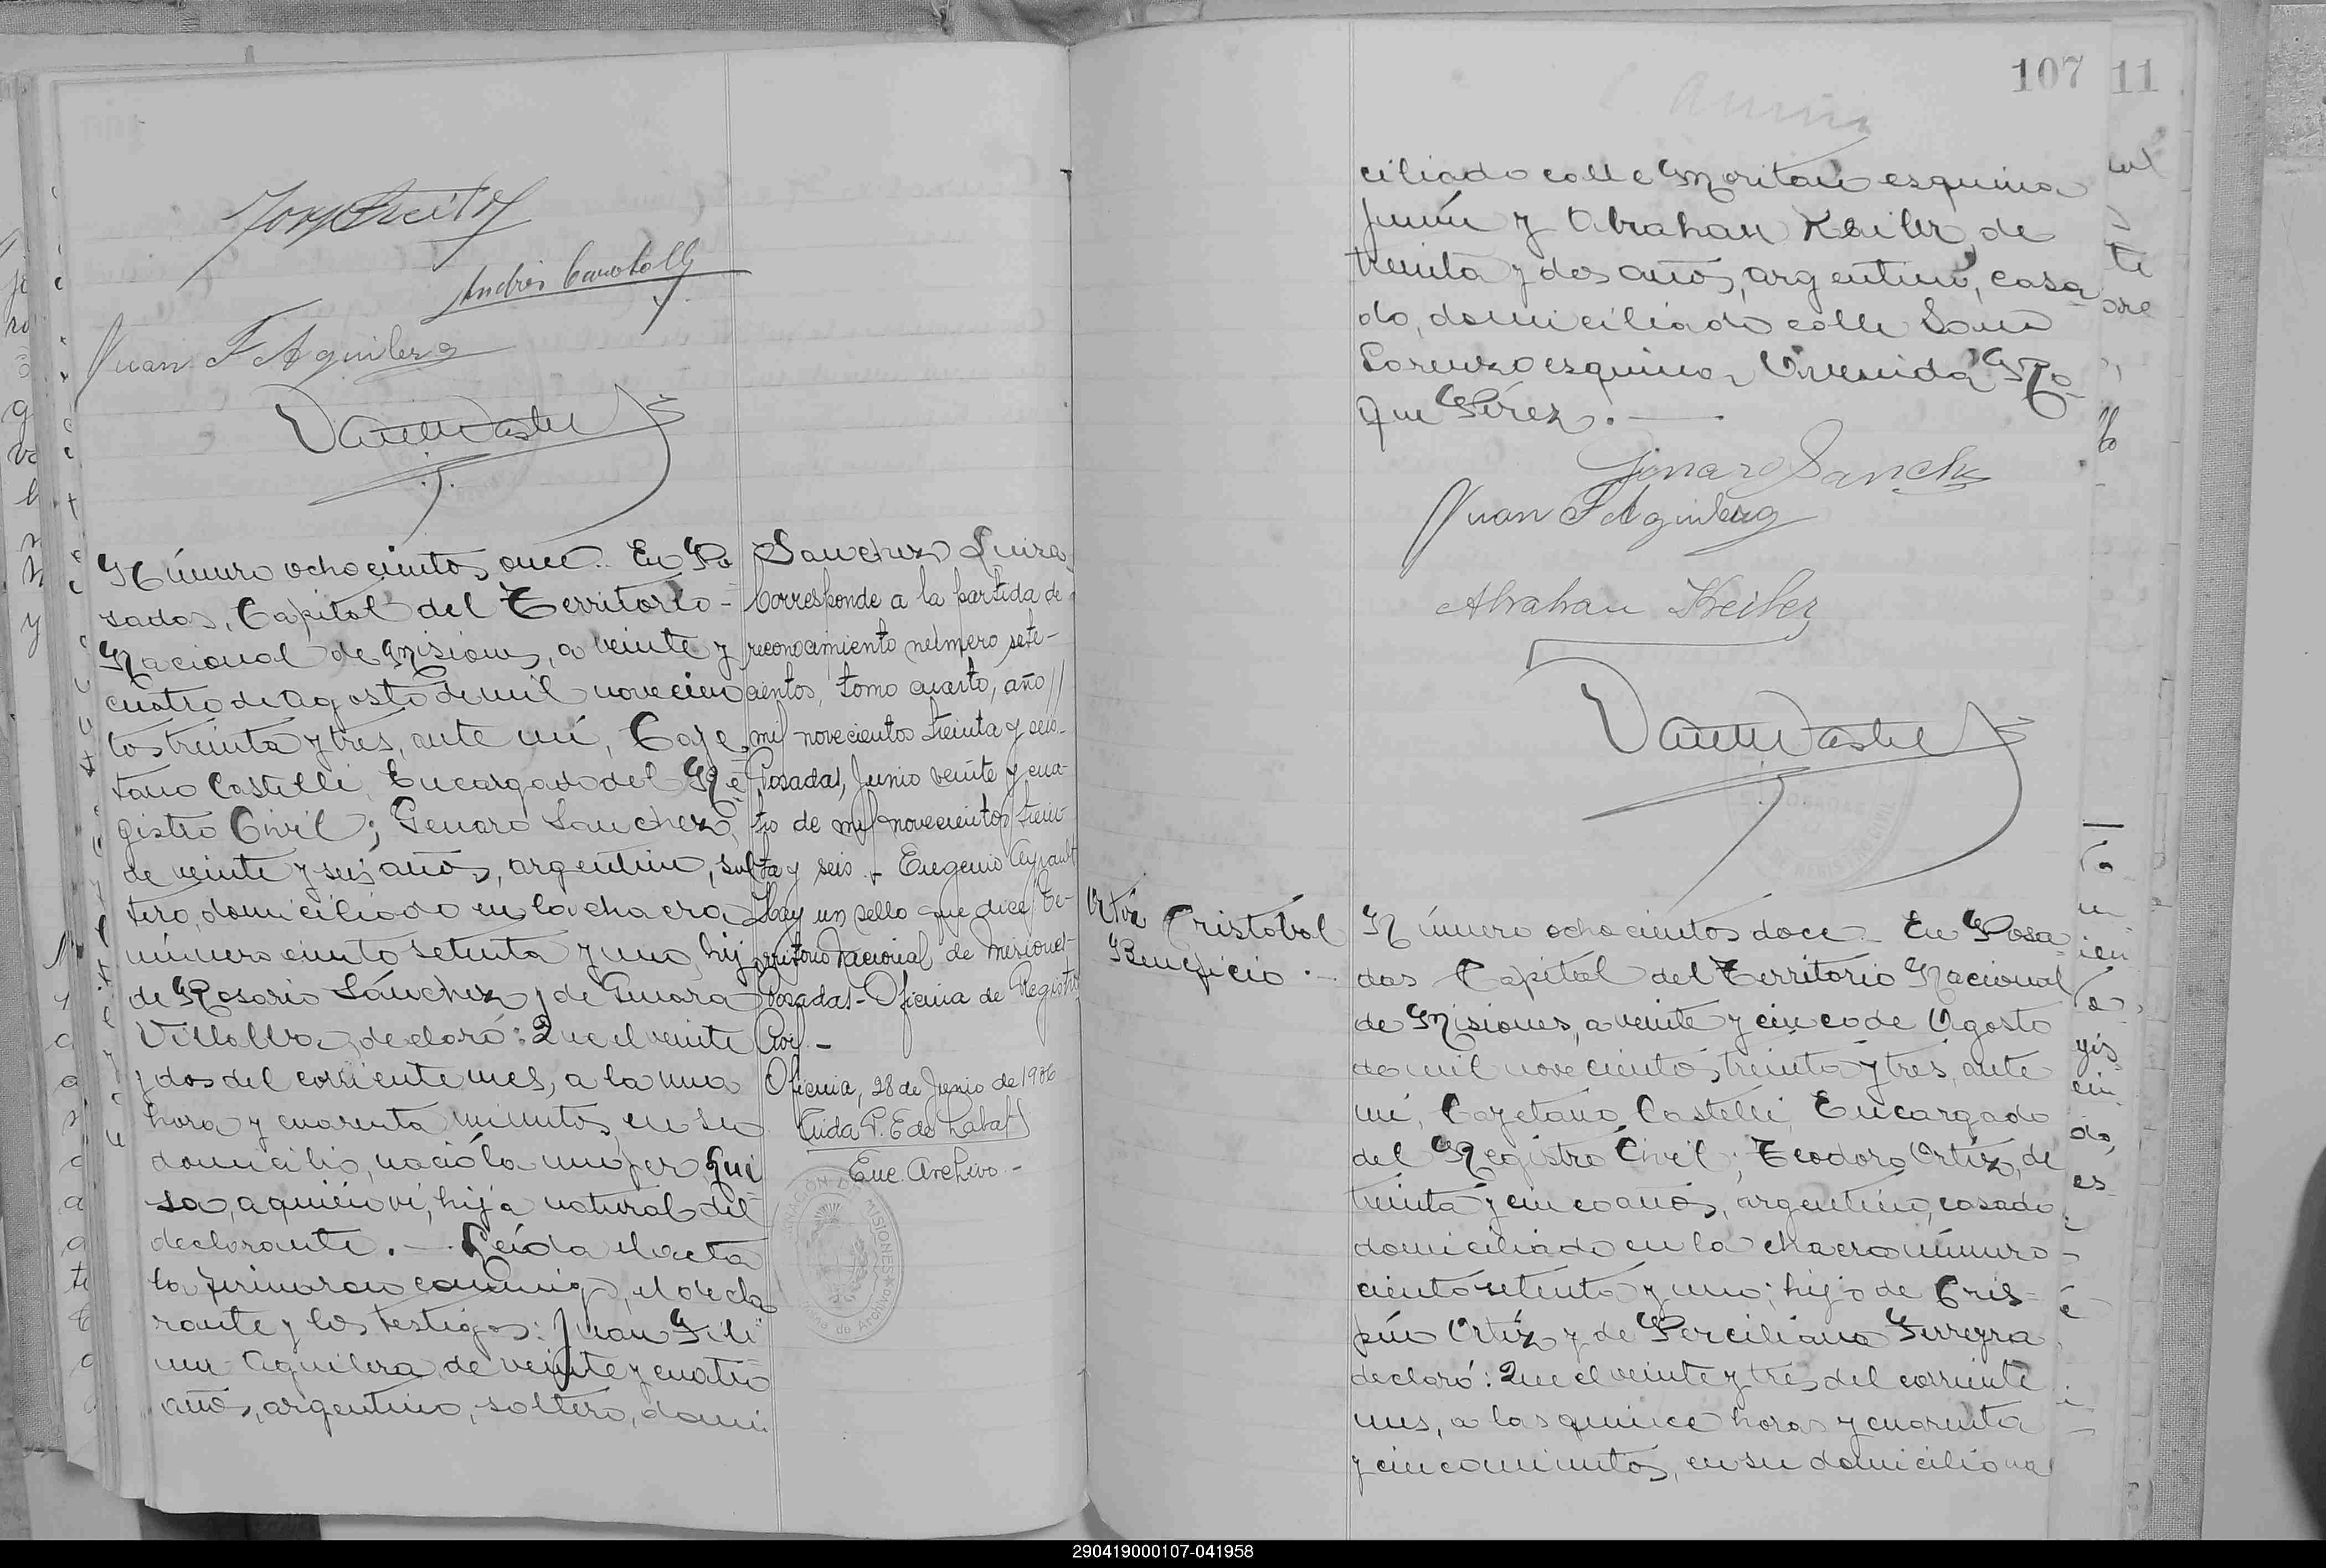 Juan F Aguilera
Número ochocientos once. En Po
sadas, Capital del Territorio
Nacional de Misiones, a veinte y
cuatro de Agosto de mil novecien
tos treinta y tres, ante mí, Caye
tano Castelli, Encargado del Re
gistro Civil; Genaro Sanchez,
de veinte y seis años, argentino, sol
tero, domiciliado en la chacra
número ciento setenta y uno, hijo
de Rosario Sánchez y de Genara
Villalba, declaró: Que el veinte
y dos del corriente mes, a la una
hora y cuarenta minutos, en su
domicilio, nació la mujer Lui
sa, a quién ví, hija natural del
declarante. — Leída el acta
la firmaron conmigo, el decla
rante y los testigos: Juan Feli
Aguilera de veinte y cuatro
años, argentino, soltero, domi
Sanchez Luisa
Corresponde a la partida de
reconocimiento número sete-
cientos, tomo cuarto, año //
mil novecientos treinta y seis.
Posadas, Junio veinte y cua-
tro de mil novecientos trein
ta y seis. - Eugenio Ayrault
Hay un sello que dice: Te-
rritorio Nacional de Misiones-
Posadas - Oficina de Registro
Civil. -
Oficina, 28 de Junio de 1936
Enc. Archivo -
107 11
ciliado calle Moritan esquina
Junín y Abrahan Keiler, de
treinta y dos años, argentino, casa
do, domiciliado calle San
Lorenzo esquina Avenida Ro
que Pérez. —
Genaro Sanchez
Juan F Aguilera
Abrahan Keiler
Ortíz Cristóbal
Beneficio. -
Número ochocientos doce. En Posa
das Capital del Territorio Nacional
de Misiones, a veinte y cinco de Agosto
de mil novecientos treinta y tres, ante
mí, Cayetano Castelli, Encargado
del Registro Civil; Teodoro Ortíz, de
treinta y cinco años, argentino, casado
domiciliado en la chacra número
ciento setenta y uno; hijo de Cris-
pín Ortíz y de Perciliana Ferreyra
declaró: Que el veinte y tres del corriente
mes, a las quince horas y cuarenta
y cinco minutos, en su domicilio na
290419000107-041958